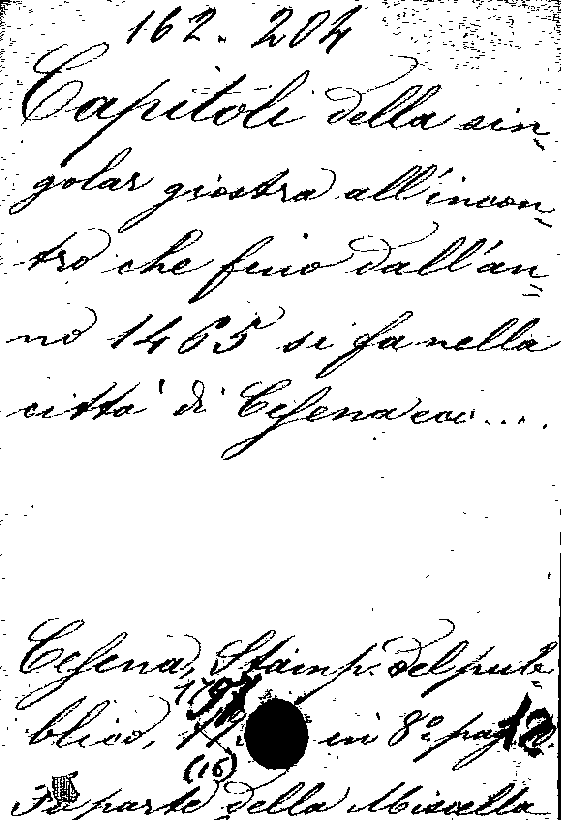 162. 204
Capitoli della sin-
golar giostra all'incon-
tro che fino dall'an-
no 1465 si fa nella
città di Cesena ecc....
Cesena, Stamp. del pub-
blico, in 8.° pag. 12.
(16)
Fa parte della Miscella